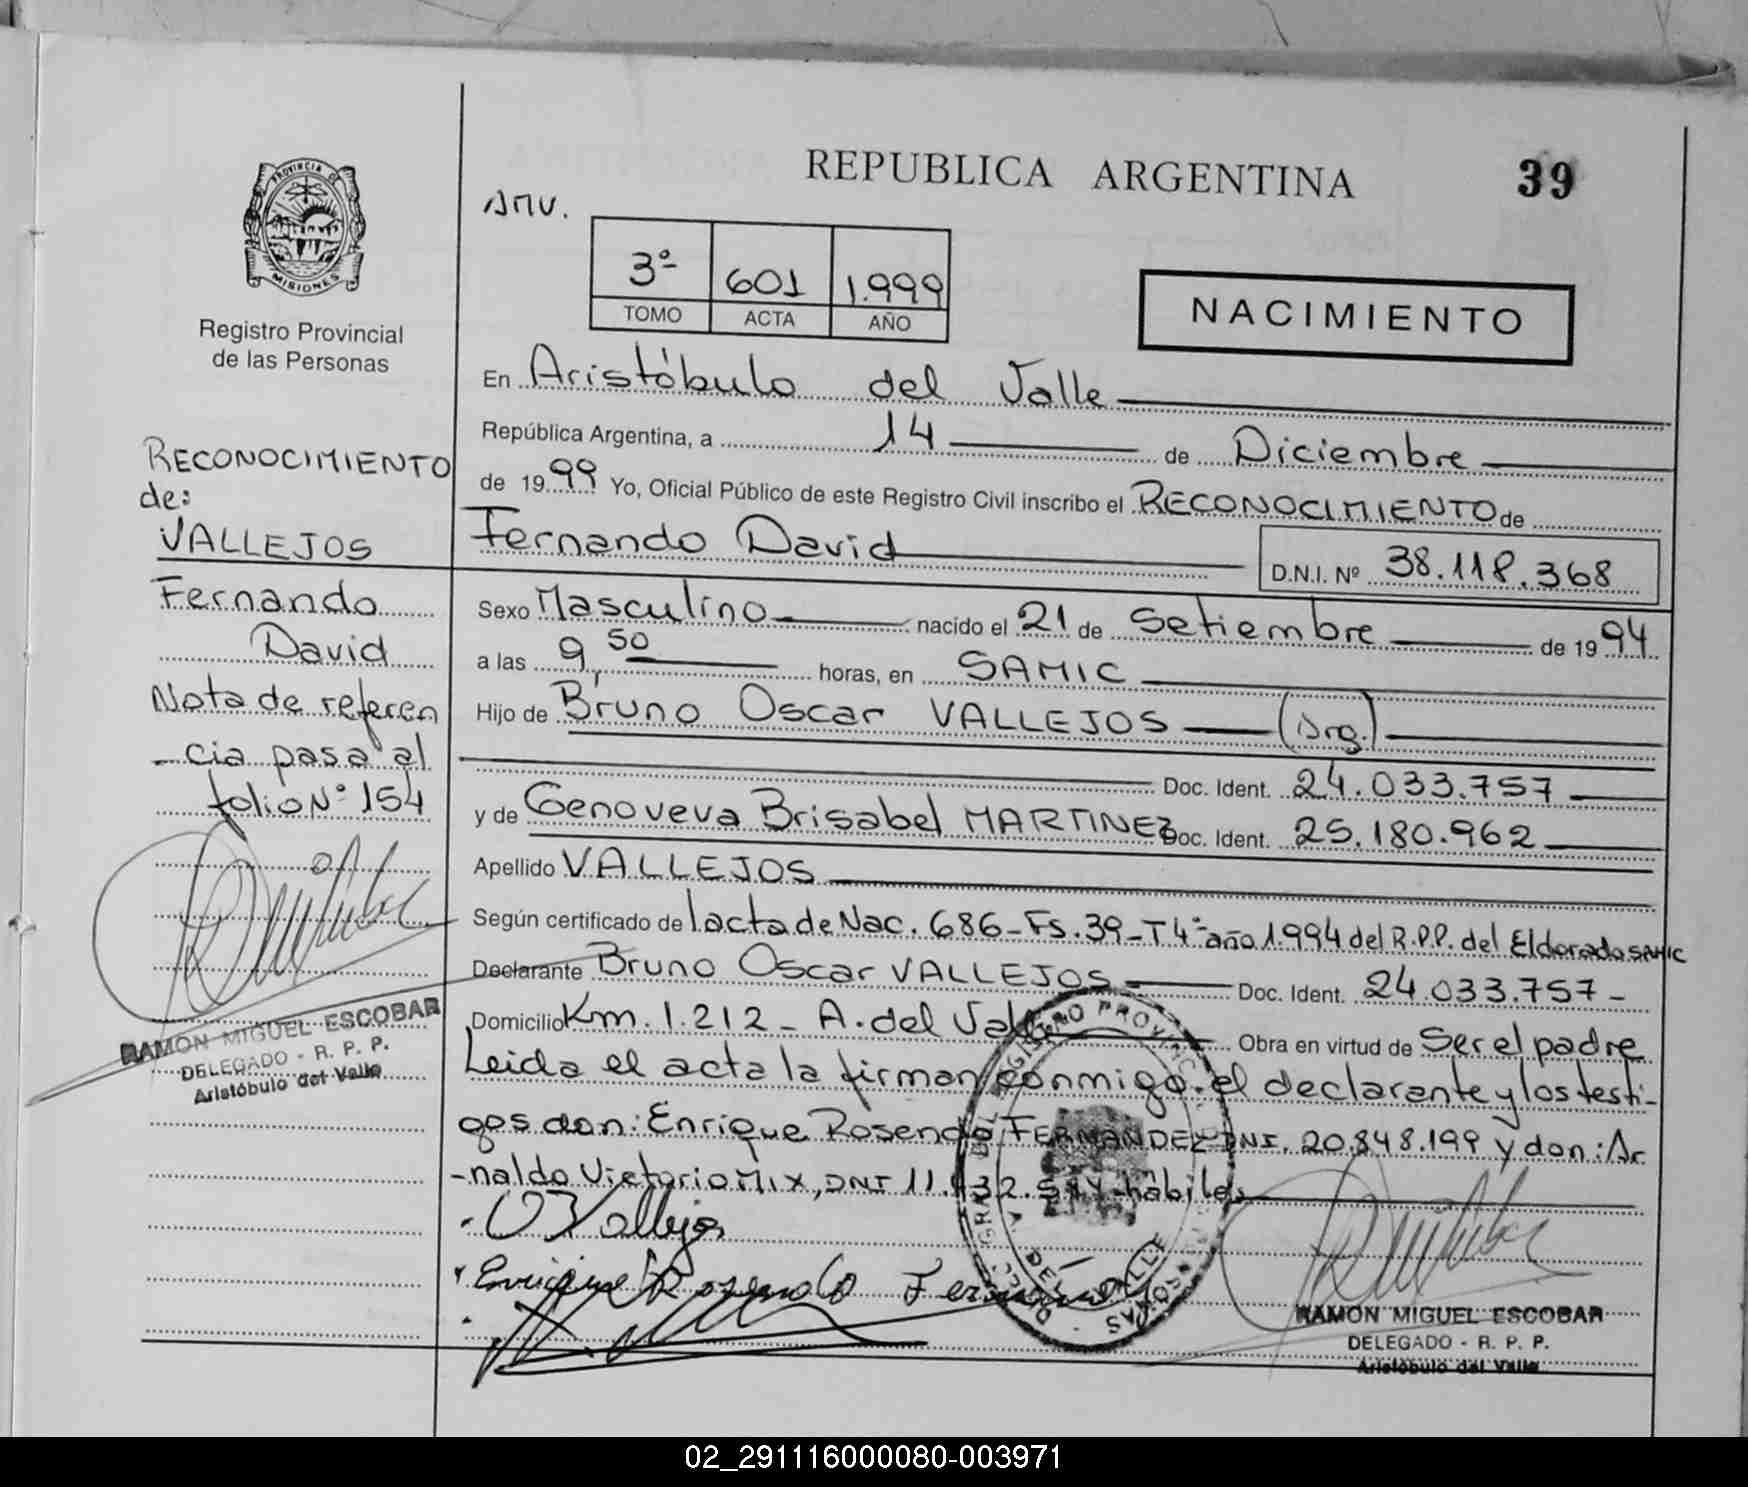 PROVINCIA DE
MISIONES
Registro Provincial
de las Personas
REPUBLICA ARGENTINA
39
AMV.
3º 601 1.999
TOMO ACTA AÑO
NACIMIENTO
En Aristóbulo del Valle
República Argentina, a 14 de Diciembre
de 1999 Yo, Oficial Público de este Registro Civil inscribo el RECONOCIMIENTO de
Fernando David
D.N.I. Nº 38.118.368
Sexo Masculino nacido el 21 de Setiembre de 1994
a las 9,50 horas, en SAMIC
Hijo de Bruno Oscar VALLEJOS (Arg.)
Doc. Ident. 24.033.757
y de Genoveva Brisabel MARTINEZ Doc. Ident. 25.180.962
Apellido VALLEJOS
Según certificado de l acta de Nac. 686-Fs.39-T4º año 1.994 del R.P.P. del Eldorado SAMIC
Declarante Bruno Oscar VALLEJOS Doc. Ident. 24.033.757-
Domicilio Km. 1.212 - A. del Valle Obra en virtud de Ser el padre
Leida el acta la firman conmigo el declarante y los testi-
gos don: Enrique Rosendo FERNANDEZ DNI. 20.848.199 y don: Ar
-naldo Victorio MIX, DNI 11. hábiles
O Vallejos
Enrique Rosendo Fernandez
RAMON MIGUEL ESCOBAR
DELEGADO - R. P. P.
Aristóbulo del Valle
RECONOCIMIENTO
de:
VALLEJOS
Fernando
David
Nota de referen
-cia pasa al
folio Nº 154
RAMON MIGUEL ESCOBAR
DELEGADO - R. P. P.
Aristóbulo del Valle
02_291116000080-003971